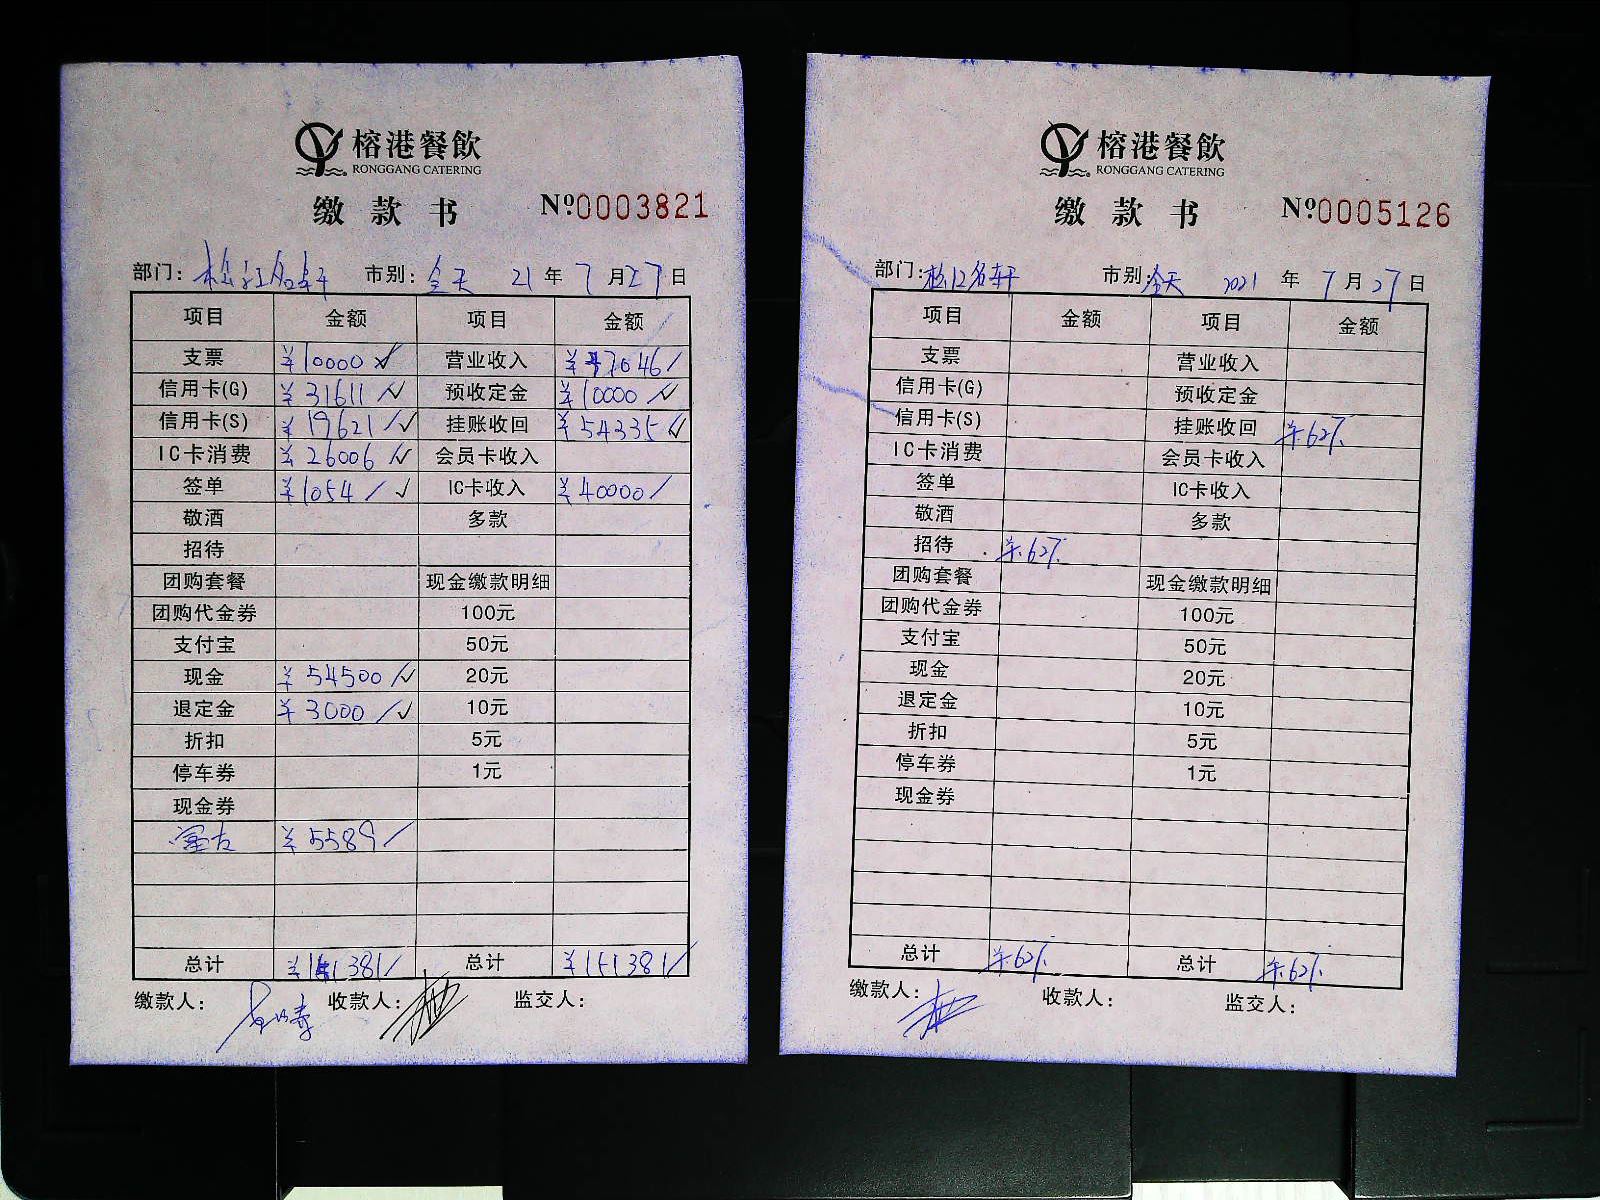 榕港餐飲
RONGGANG CATERING
缴款书 Nº0003821
部门: 松江名轩 市别: 全天 21 年 7 月 27 日
项目 金额 项目 金额
支票 ¥10000 营业收入 ¥47046/
信用卡(G) ¥31611 预收定金 ¥10000
信用卡(S) ¥19621 挂账收回 ¥54335
IC卡消费 ¥26006 会员卡收入
签单 ¥1054/ IC卡收入 ¥40000/
敬酒 多款
招待
团购套餐 现金缴款明细
团购代金券 100元
支付宝 50元
现金 ¥54500 20元
退定金 ¥3000/ 10元
折扣 5元
停车券 1元
现金券
¥5589/
总计 ¥151381/ 总计 ¥151381/
缴款人: 收款人: 监交人:
榕港餐飲
RONGGANG CATERING
缴款书 Nº0005126
部门: 松江名轩 市别: 全天 2021 年 7 月 27 日
项目 金额 项目 金额
支票 营业收入
信用卡(G) 预收定金
信用卡(S) 挂账收回
IC卡消费 会员卡收入
签单 IC卡收入
敬酒 多款
招待
团购套餐 现金缴款明细
团购代金券 100元
支付宝 50元
现金 20元
退定金 10元
折扣 5元
停车券 1元
现金券
总计 总计
缴款人: 收款人: 监交人: